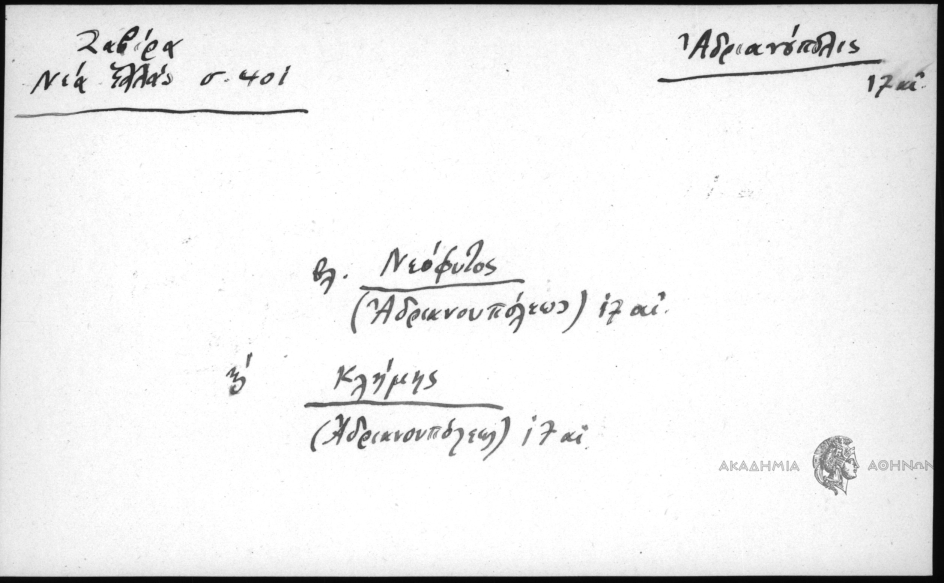 Ζαβίρα
Νέα Ἑλλάς σ. 401
Ἀδριανόπολις
17 αἰ.
βλ. Νεόφυτος
(Ἀδριανουπόλεως) 17 αἰ.
Κλήμης
(Ἀδριανουπόλεως) 17 αἰ
ΑΚΑΔΗΜΙΑ ΑΘΗΝΩΝ